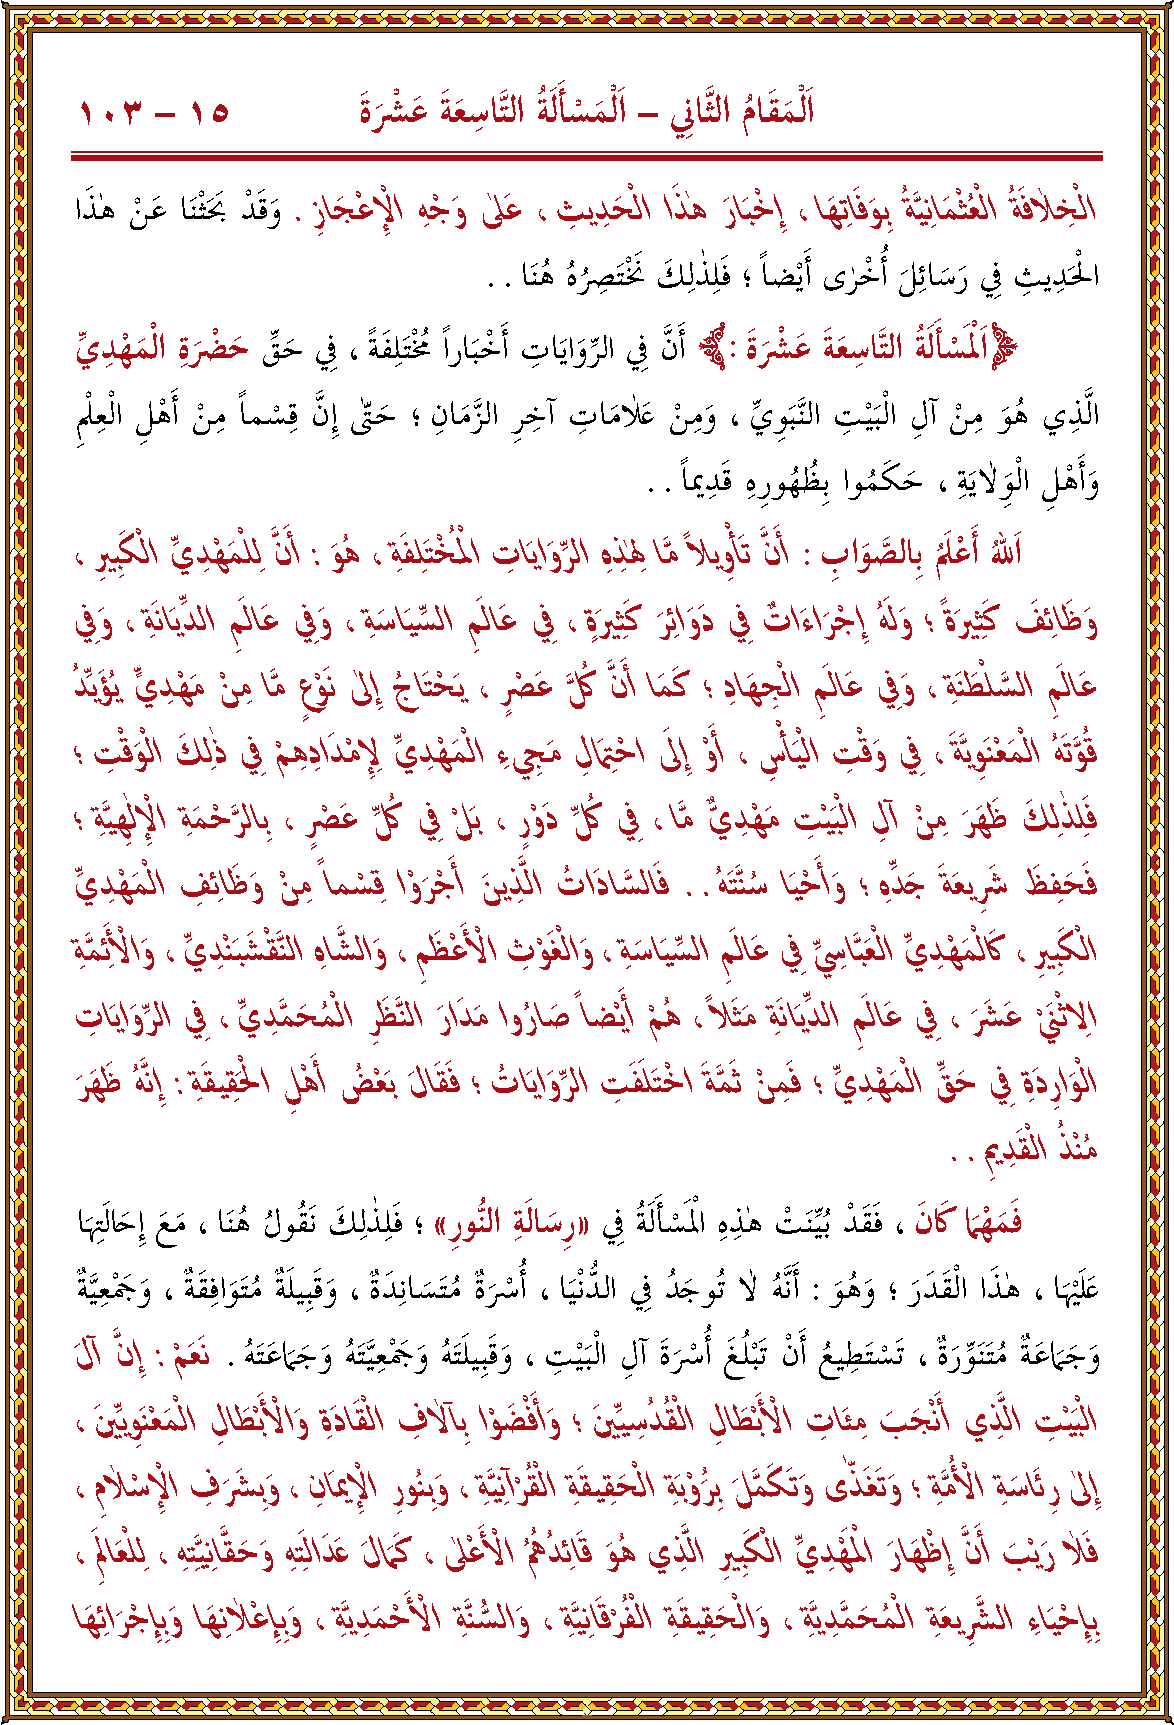 اَلْمَقَامُ الثَّانِي – اَلْمَسْأَلَةُ التَّاسِعَةَ عَشْرَةَ ١٥ – ١٠٣
الْخِلَافَةُ الْعُثْمَانِيَّةُ بِوَفَاتِهَا ، إِخْبَارَ هٰذَا الْحَدِيثِ ، عَلٰى وَجْهِ الْإِعْجَازِ . وَقَدْ بَحَثْنَا عَنْ هٰذَا
الْحَدِيثِ فِي رَسَائِلَ أُخْرٰى أَيْضاً ؛ فَلِذٰلِكَ نَخْتَصِرُهُ هُنَا . .
﴿اَلْمَسْأَلَةُ التَّاسِعَةَ عَشْرَةَ :﴾ أَنَّ فِي الرِّوَايَاتِ أَخْبَاراً مُخْتَلِفَةً ، فِي حَقِّ حَضْرَةِ الْمَهْدِيِّ
الَّذِي هُوَ مِنْ آلِ الْبَيْتِ النَّبَوِيِّ ، وَمِنْ عَلَامَاتِ آخِرِ الزَّمَانِ ؛ حَتّٰى إِنَّ قِسْماً مِنْ أَهْلِ الْعِلْمِ
وَأَهْلِ الْوِلَايَةِ ، حَكَمُوا بِظُهُورِهِ قَدِيماً . .
اَللهُ أَعْلَمُ بِالصَّوَابِ : أَنَّ تَأْوِيلاً مَّا لِهٰذِهِ الرِّوَايَاتِ الْمُخْتَلِفَةِ ، هُوَ : أَنَّ لِلْمَهْدِيِّ الْكَبِيرِ ،
وَظَائِفَ كَثِيرَةً ؛ وَلَهُ إِجْرَاءَاتٌ فِي دَوَائِرَ كَثِيرَةٍ ، فِي عَالَمِ السِّيَاسَةِ ، وَفِي عَالَمِ الدِّيَانَةِ ، وَفِي
عَالَمِ السَّلْطَنَةِ ، وَفِي عَالَمِ الْجِهَادِ ؛ كَمَا أَنَّ كُلَّ عَصْرٍ ، يَحْتَاجُ إِلٰى نَوْعٍ مَّا مِنْ مَهْدِيٍّ يُؤَيِّدُ
قُوَّتَهُ الْمَعْنَوِيَّةَ ، فِي وَقْتِ الْيَأْسِ ، أَوْ إِلَى احْتِمَالِ مَجِيءِ الْمَهْدِيِّ لِإِمْدَادِهِمْ فِي ذٰلِكَ الْوَقْتِ ؛
فَلِذٰلِكَ ظَهَرَ مِنْ آلِ الْبَيْتِ مَهْدِيٌّ مَّا ، فِي كُلِّ دَوْرٍ ، بَلْ فِي كُلِّ عَصْرٍ ، بِالرَّحْمَةِ الْإِلٰهِيَّةِ ؛
فَحَفِظَ شَرِيعَةَ جَدِّهِ ؛ وَأَحْيَا سُنَّتَهُ . . فَالسَّادَاتُ الَّذِينَ أَجْرَوْا قِسْماً مِنْ وَظَائِفِ الْمَهْدِيِّ
الْكَبِيرِ ، كَالْمَهْدِيِّ الْعَبَّاسِيِّ فِي عَالَمِ السِّيَاسَةِ ، وَالْغَوْثِ الْأَعْظَمِ ، وَالشَّاهِ النَّقْشَبَنْدِيِّ ، وَالْأَئِمَّةِ
الِاثْنَيْ عَشَرَ ، فِي عَالَمِ الدِّيَانَةِ مَثَلاً ، هُمْ أَيْضاً صَارُوا مَدَارَ النَّظَرِ الْمُحَمَّدِيِّ ، فِي الرِّوَايَاتِ
الْوَارِدَةِ فِي حَقِّ الْمَهْدِيِّ ؛ فَمِنْ ثَمَّةَ اخْتَلَفَتِ الرِّوَايَاتُ ؛ فَقَالَ بَعْضُ أَهْلِ الْحَقِيقَةِ : إِنَّهُ ظَهَرَ
مُنْذُ الْقَدِيمِ . .
فَمَهْمَا كَانَ ، فَقَدْ بُيِّنَتْ هٰذِهِ الْمَسْأَلَةُ فِي «رِسَالَةِ النُّورِ» ؛ فَلِذٰلِكَ نَقُولُ هُنَا ، مَعَ إِحَالَتِهَا
عَلَيْهَا ، هٰذَا الْقَدَرَ ؛ وَهُوَ : أَنَّهُ لَا تُوجَدُ فِي الدُّنْيَا ، أُسْرَةٌ مُتَسَانِدَةٌ ، وَقَبِيلَةٌ مُتَوَافِقَةٌ ، وَجَمْعِيَّةٌ
وَجَمَاعَةٌ مُتَنَوِّرَةٌ ، تَسْتَطِيعُ أَنْ تَبْلُغَ أُسْرَةَ آلِ الْبَيْتِ ، وَقَبِيلَتَهُ وَجَمْعِيَّتَهُ وَجَمَاعَتَهُ . نَعَمْ : إِنَّ آلَ
الْبَيْتِ الَّذِي أَنْجَبَ مِئَاتِ الْأَبْطَالِ الْقُدْسِيِّينَ ؛ وَأَفْضَوْا بِآلَافِ الْقَادَةِ وَالْأَبْطَالِ الْمَعْنَوِيِّينَ ،
إِلٰى رِئَاسَةِ الْأُمَّةِ ؛ وَتَغَذّٰى وَتَكَمَّلَ بِرُوْبَةِ الْحَقِيقَةِ الْقُرْآنِيَّةِ ، وَبِنُورِ الْإِيمَانِ ، وَبِشَرَفِ الْإِسْلَامِ ،
فَلَا رَيْبَ أَنَّ إِظْهَارَ الْمَهْدِيِّ الْكَبِيرِ الَّذِي هُوَ قَائِدُهُمُ الْأَعْلٰى ، كَمَالَ عَدَالَتِهِ وَحَقَّانِيَّتِهِ ، لِلْعَالَمِ ،
بِإِحْيَاءِ الشَّرِيعَةِ الْمُحَمَّدِيَّةِ ، وَالْحَقِيقَةِ الْفُرْقَانِيَّةِ ، وَالسُّنَّةِ الْأَحْمَدِيَّةِ ، وَبِإِعْلَانِهَا وَبِإِجْرَائِهَا